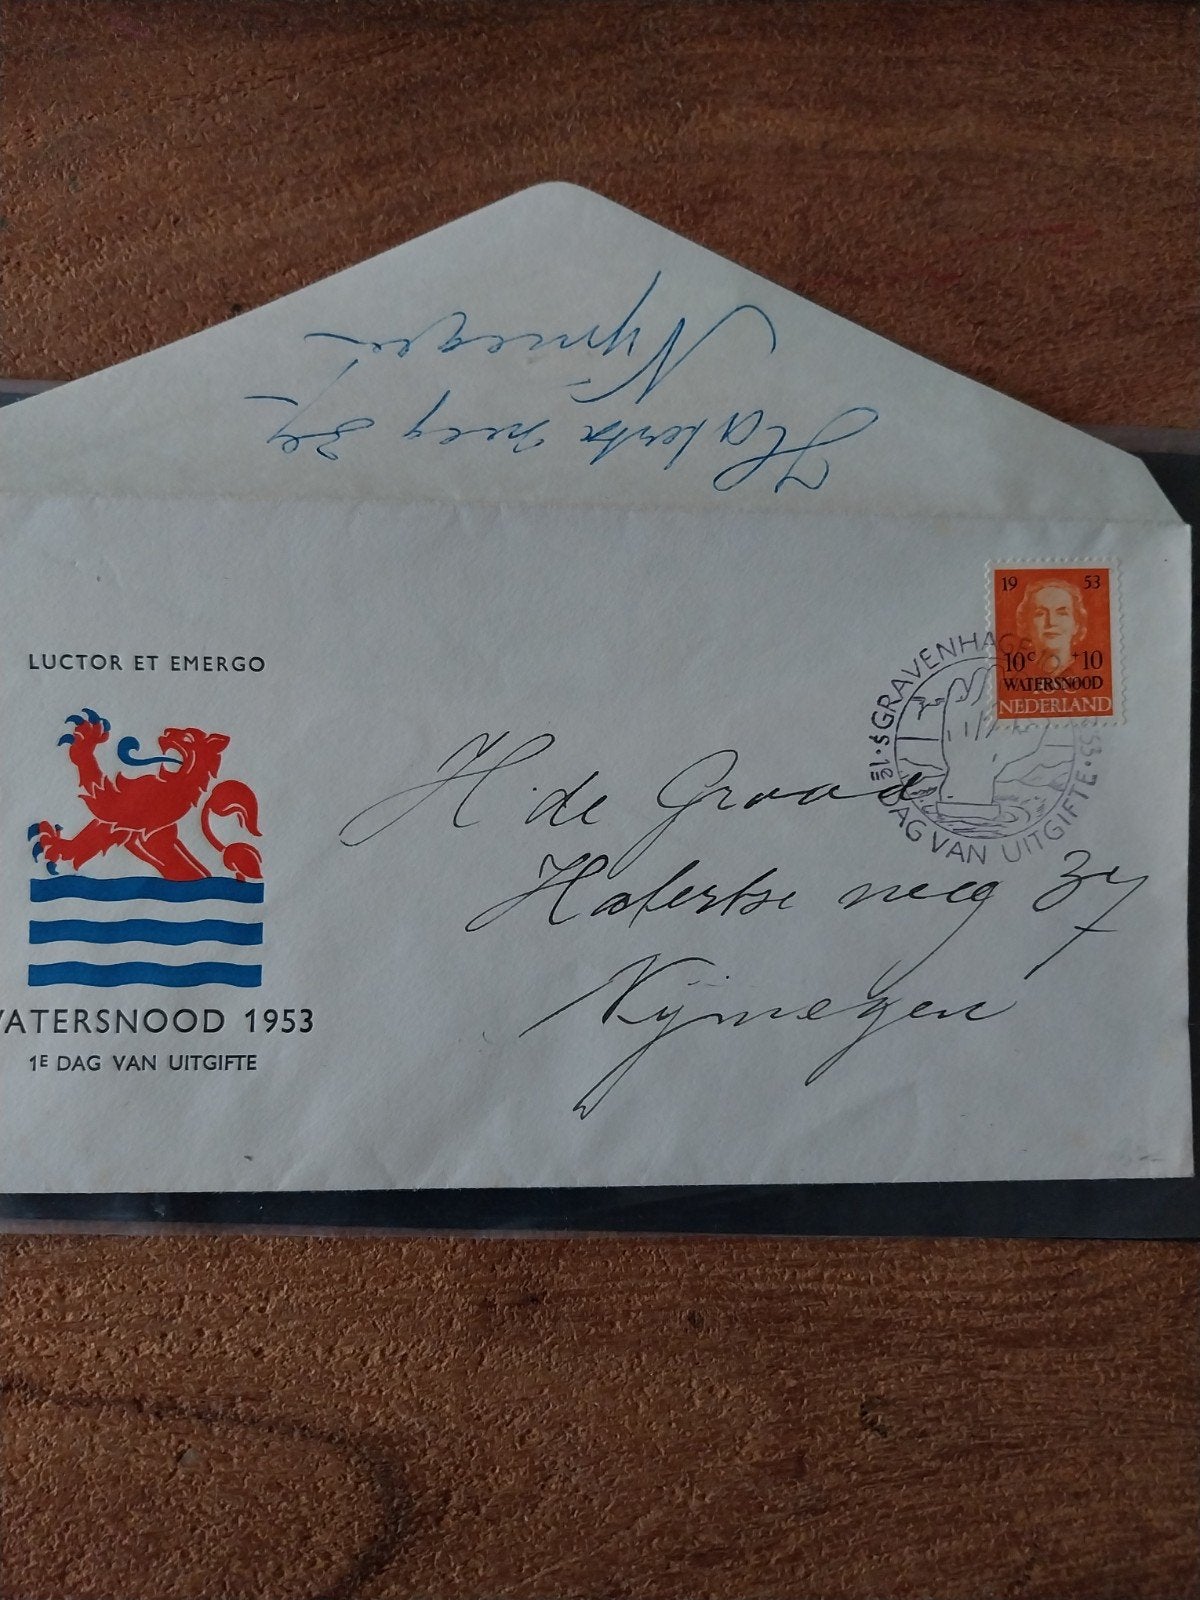 Hatertse weg 37
Nijmegen
LUCTOR ET EMERGO
WATERSNOOD 1953
1E DAG VAN UITGIFTE
19 53
10c +10
WATERSNOOD
NEDERLAND
'S GRAVENHAGE
53 · 1E DAG VAN UITGIFTE
H. de Graad
Hatertse weg 37
Nijmegen